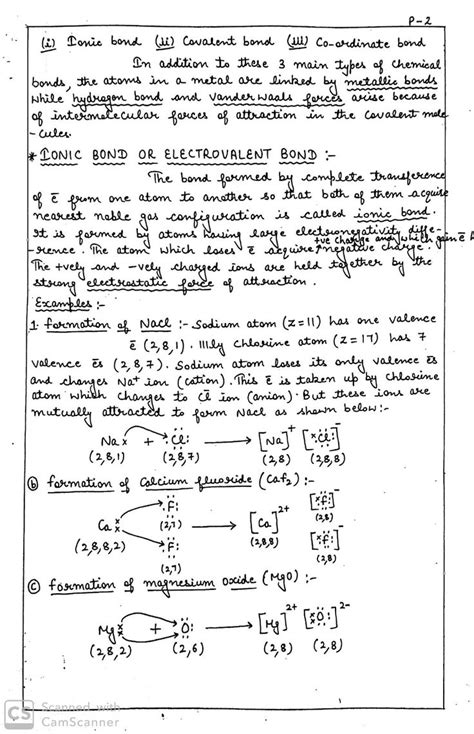 P-2
(i) Ionic bond (ii) Covalent bond (iii) Co-ordinate bond
In addition to these 3 main types of chemical
bonds, the atoms in a metal are linked by metallic bonds
while hydrogen bond and Vanderwaals forces arise because
of intermolecular forces of attraction in the covalent mole
-cules.
* IONIC BOND OR ELECTROVALENT BOND :-
The bond formed by complete transference
of ē from one atom to another so that both of them acquire
nearest noble gas configuration is called ionic bond.
It is formed by atoms having large electronegativity diffe-
-rence. The atom which loses ē acquire +ve charge and which gain ē
negative charge.
The +vely and -vely charged ions are held together by the
strong electrostatic force of attraction.
Examples :-
1. Formation of NaCl :- Sodium atom (z=11) has one valence
ē (2,8,1). Illly chlorine atom (z=17) has 7
valence ēs (2,8,7). Sodium atom loses its only valence ēs
and changes Na+ ion (cation). This ē is taken up by chlorine
atom which changes to Cl̄ ion (anion). But these ions are
mutually attracted to form NaCl as shown below:-
Na× + :Cl: → [Na]+ [×Cl:]-
(2,8,1) (2,8,7) (2,8) (2,8,8)
(b) Formation of Calcium fluoride (CaF2) :-
:F: [×F:]-
Ca×× (2,7) → [Ca]2+ (2,8)
(2,8,8,2) :F: (2,8,8) [×F:]-
(2,7) (2,8)
(c) Formation of magnesium oxide (MgO) :-
Mg×× + :O: → [Mg]2+ [××O:]2-
(2,8,2) (2,6) (2,8) (2,8)
CS Scanned with
CamScanner